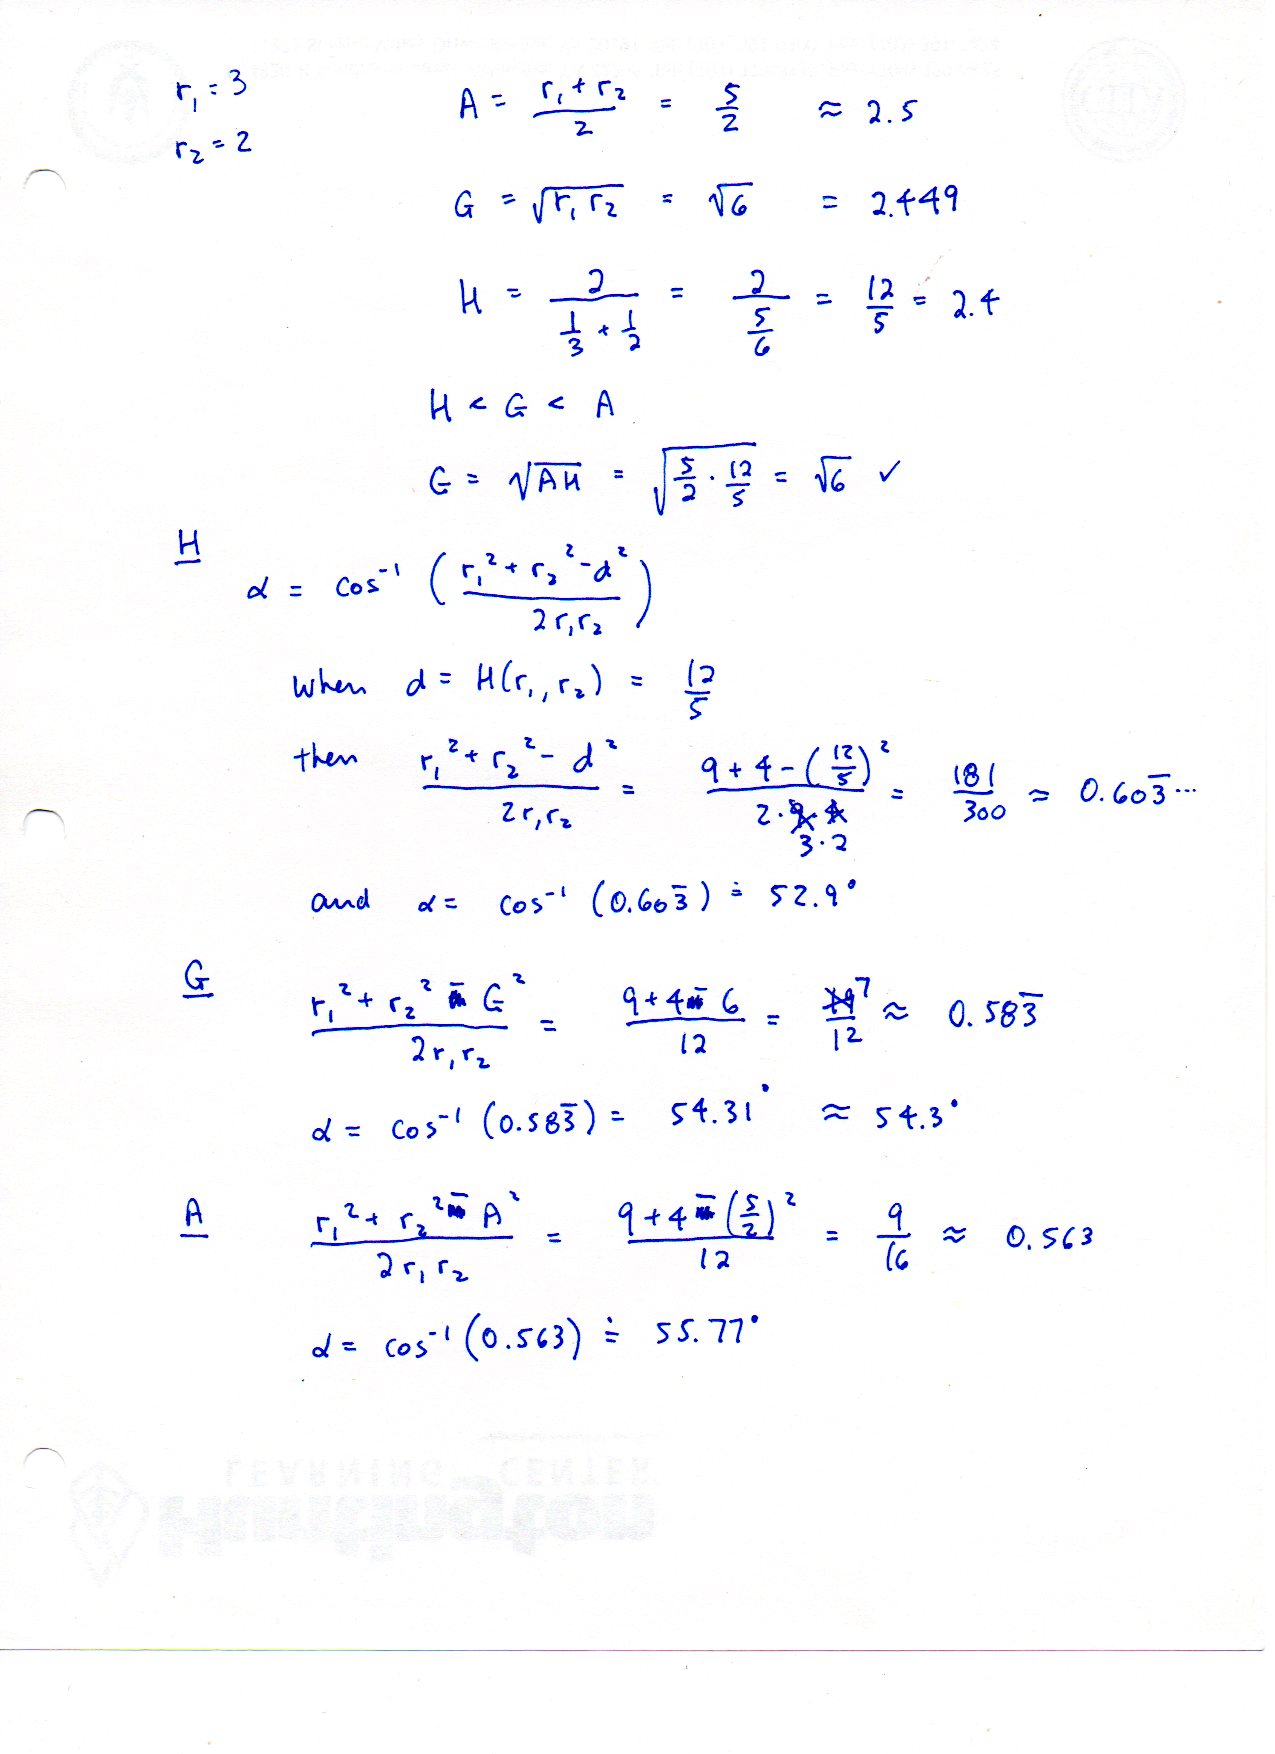 r₁ = 3
A = (r₁ + r₂)/2 = 5/2 ≈ 2.5
r₂ = 2
G = √(r₁ r₂) = √6 = 2.449
H = 2/(1/3 + 1/2) = 2/(5/6) = 12/5 = 2.4
H < G < A
G = √(AH) = √(5/2 · 12/5) = √6 ✓
H
α = cos⁻¹ ((r₁² + r₂² - d²)/(2r₁r₂))
when d = H(r₁, r₂) = 12/5
then (r₁² + r₂² - d²)/(2r₁r₂) = (9 + 4 - (12/5)²)/(2 · 3 · 2) = 181/300 ≈ 0.603̅ ...
and α = cos⁻¹ (0.603̅) ≐ 52.9°
G
(r₁² + r₂² - G²)/(2r₁r₂) = (9 + 4 - 6)/12 = 7/12 ≈ 0.583̅
α = cos⁻¹ (0.583̅) = 54.31° ≈ 54.3°
A
(r₁² + r₂² - A²)/(2r₁r₂) = (9 + 4 - (5/2)²)/12 = 9/16 ≈ 0.563
α = cos⁻¹ (0.563) ≐ 55.77°
LEARNING CENTER
Huntington